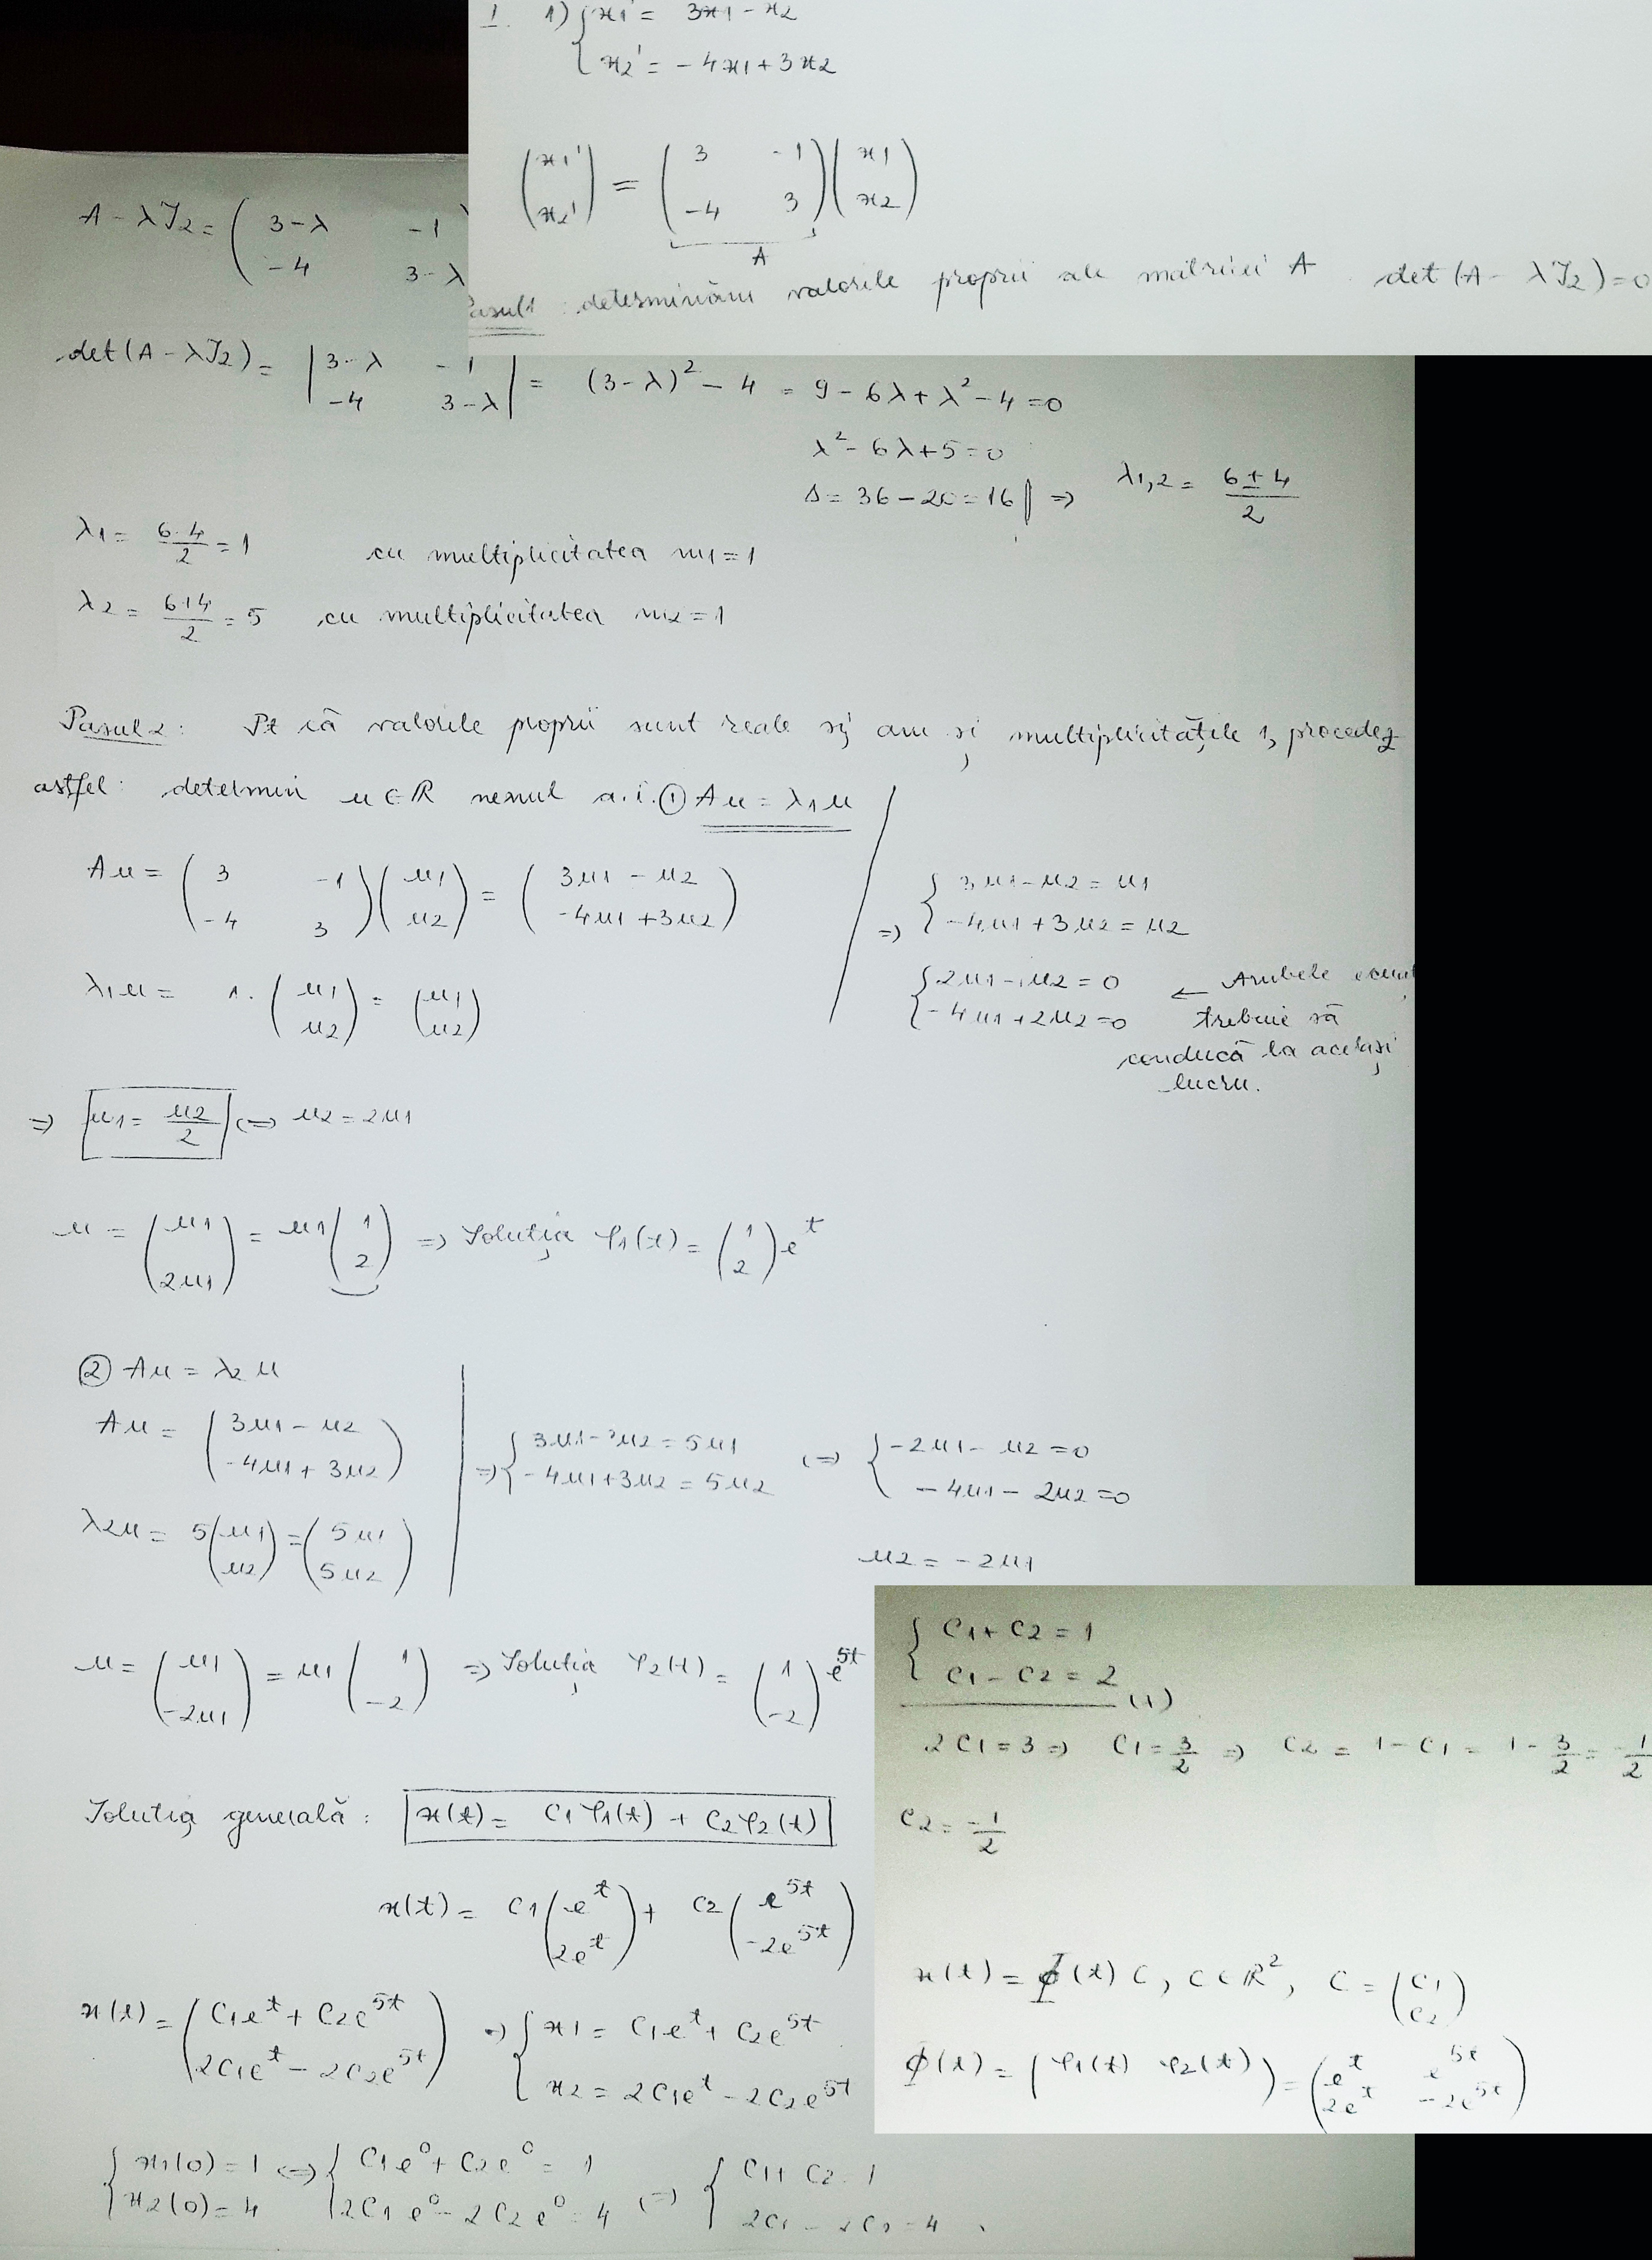 I. 1) { x1' = 3x1 - x2
{ x2' = - 4x1 + 3x2
(x1' x2') = (3 -1 -4 3) (x1 x2)
A
Pasul 1: determinăm valorile proprii ale matricei A det(A - λI2) = 0
A - λI2 = (3-λ -1
-4 3-λ
det(A - λI2) = |3-λ -1 -4 3-λ| = (3-λ)² - 4 = 9 - 6λ + λ² - 4 = 0
λ² - 6λ + 5 = 0
Δ = 36 - 20 = 16 | ⇒ λ1,2 = (6 ± 4)/2
λ1 = (6-4)/2 = 1 cu multiplicitatea m1 = 1
λ2 = (6+4)/2 = 5 cu multiplicitatea m2 = 1
Pasul 2: Pt că valorile proprii sunt reale și am și multiplicitățile 1, procedez
astfel: determin u ∈ R nenul a.î. ① Au = λ1u
Au = (3 -1 -4 3) (u1 u2) = (3u1 - u2 -4u1 + 3u2)
λ1u = 1· (u1 u2) = (u1 u2)
⇒ { 3u1 - u2 = u1
{ -4u1 + 3u2 = u2
{ 2u1 - u2 = 0 ← Ambele ecuaț
{ -4u1 + 2u2 = 0 trebuie să
conducă la același
lucru.
⇒ u1 = u2/2 ⇔ u2 = 2u1
u = (u1 2u1) = u1 (1 2) ⇒ Soluția φ1(t) = (1 2) e^t
② Au = λ2 u
Au = (3u1 - u2 -4u1 + 3u2)
λ2u = 5 (u1 u2) = (5u1 5u2)
⇒ { 3u1 - u2 = 5u1 ⇔ { -2u1 - u2 = 0
{ -4u1 + 3u2 = 5u2 { -4u1 - 2u2 = 0
u2 = -2u1
u = (u1 -2u1) = u1 (1 -2) ⇒ Soluția φ2(t) = (1 -2) e^5t
Soluția generală: x(t) = C1φ1(t) + C2φ2(t)
x(t) = C1 (e^t 2e^t) + C2 (e^5t -2e^5t)
x(t) = (C1e^t + C2e^5t 2C1e^t - 2C2e^5t) ⇒ { x1 = C1e^t + C2e^5t
{ x2 = 2C1e^t - 2C2e^5t
{ x1(0) = 1 ⇔ { C1e^0 + C2e^0 = 1 ⇔ { C1 + C2 = 1
{ x2(0) = 4 { 2C1e^0 - 2C2e^0 = 4 { 2C1 - 2C2 = 4
{ C1 + C2 = 1
{ C1 - C2 = 2
(+)
2C1 = 3 ⇒ C1 = 3/2 ⇒ C2 = 1 - C1 = 1 - 3/2 = -1/2
C2 = -1/2
x(t) = Φ(t) C, C ∈ R², C = (C1 C2)
Φ(t) = (φ1(t) φ2(t)) = (e^t e^5t 2e^t -2e^5t)